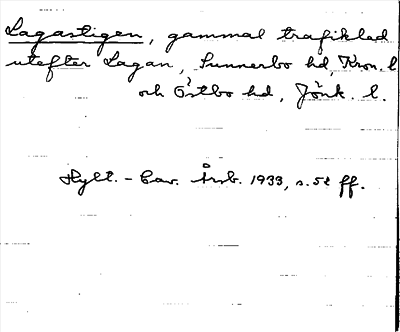 Lagastigen, gammal trafikled
utefter Lagan, Sunnerbo hd, Kron. l
och Östbo hd, Jönk. l.
Hylt.-Cav. Årsb. 1933, s. 52 ff.